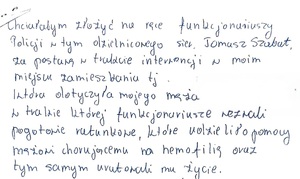 Chciałabym złożyć na ręce funkcjonariuszy
Policji w tym dzielnicowego sier. Tomasz Szabat,
za postawę w trakcie interwencji w moim
miejscu zamieszkania tj.
która dotyczyła mojego męża
w trakcie której funkcjonariusze wezwali
pogotowie ratunkowe, które udzieliło pomocy
mężowi chorującemu na hemofilię oraz
tym samym uratowali mu życie.